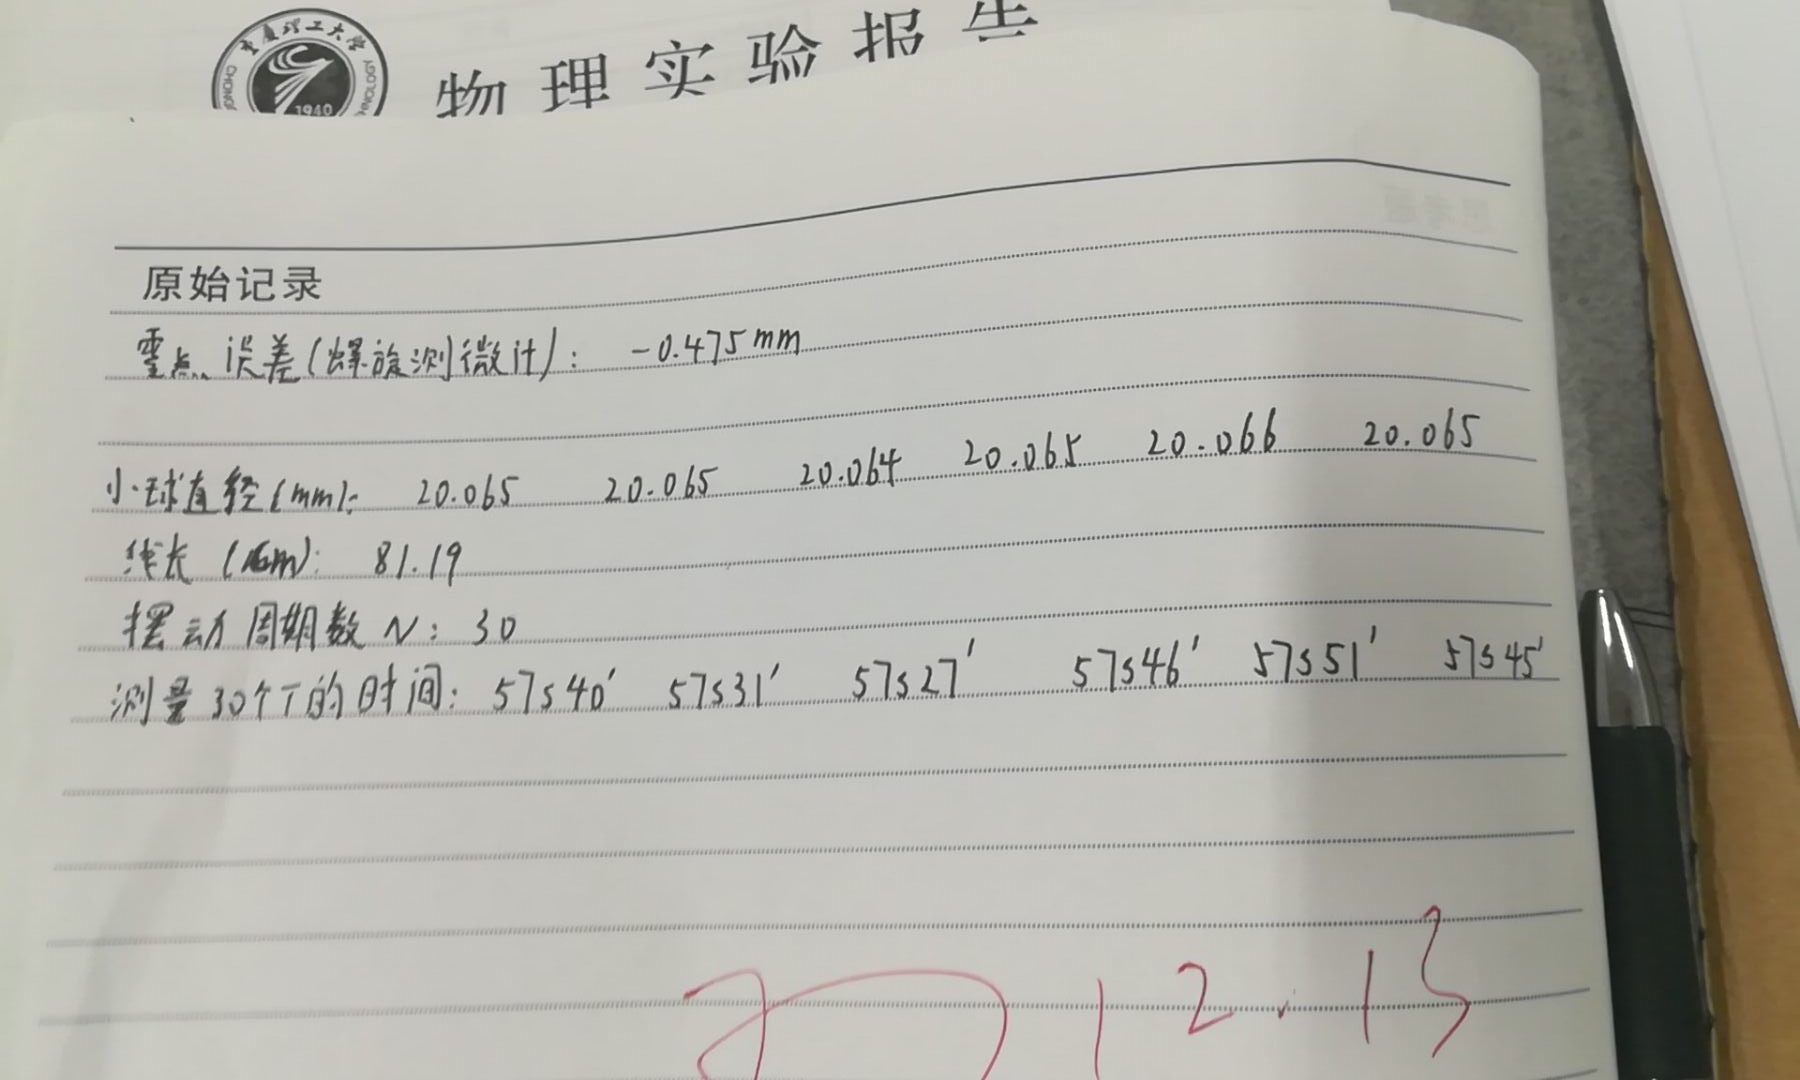 重庆理工大学
1940
物理实验报告
原始记录
零点误差(螺旋测微计): -0.475mm
小球直径(mm): 20.065 20.065 20.064 20.065 20.066 20.065
线长 (cm): 81.19
摆动周期数N: 30
测量30个T的时间: 57s40' 57s31' 57s27' 57s46' 57s51' 57s45'
12.13